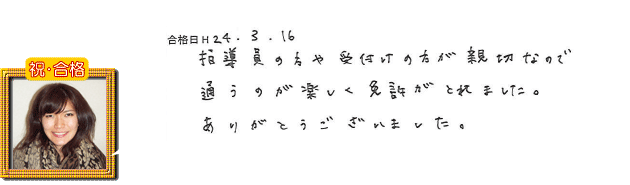 合格日H24.3.16
指導員の方や受付けの方が親切なので
祝・合格
通うのが楽しく免許がとれました。
ありがとうございました。